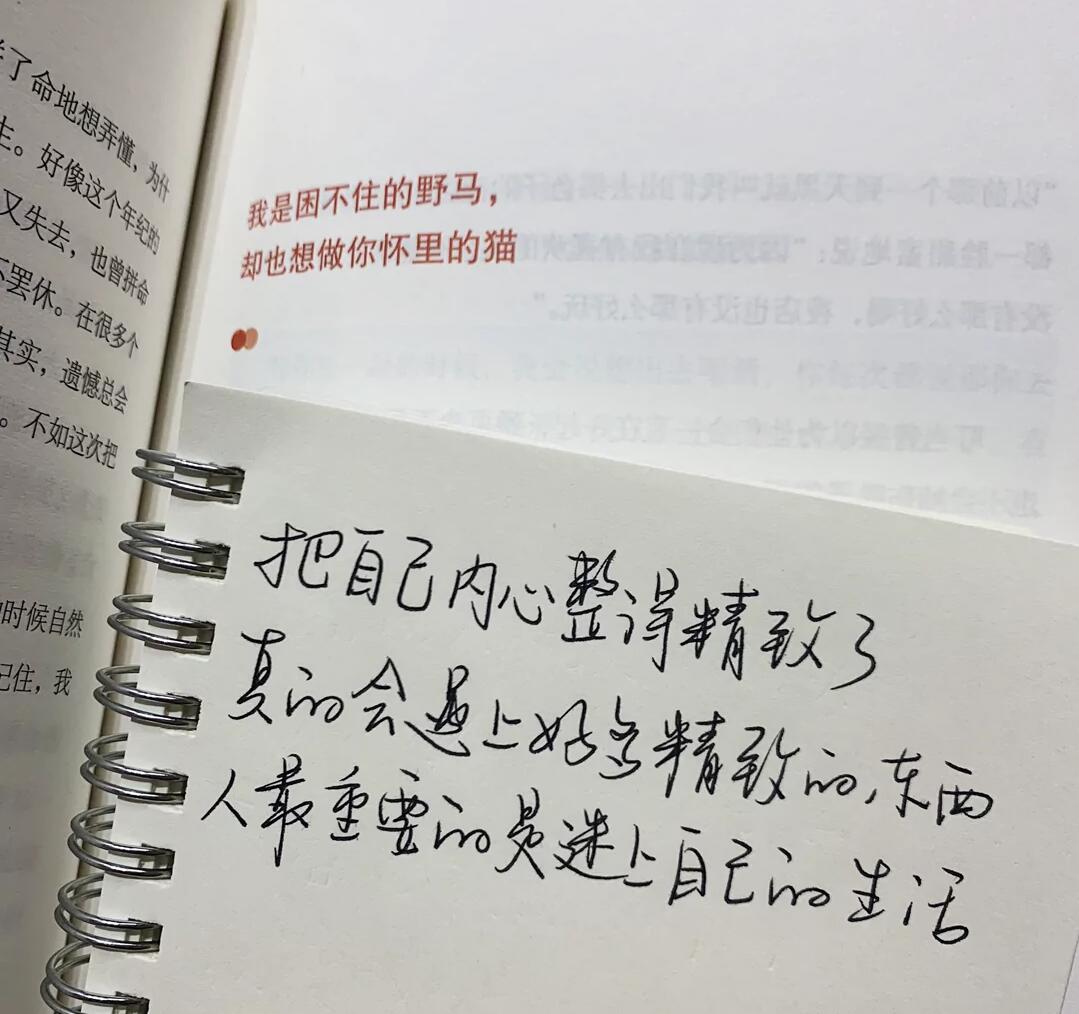 了命地想弄懂，为什
生。好像这个年纪的
又失去，也曾拼命
不罢休。在很多个
其实，遗憾总会
。不如这次把
时候自然
记住，我
我是困不住的野马，
却也想做你怀里的猫
把自己内心整得精致了
真的会遇上好多精致的东西
人最重要的是迷上自己的生活